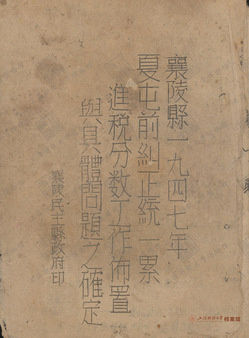 襄陵縣一九四七年
夏屯前糾正統一累
進税分数工作佈置
與具體問題之確定
襄陵民主縣政府印